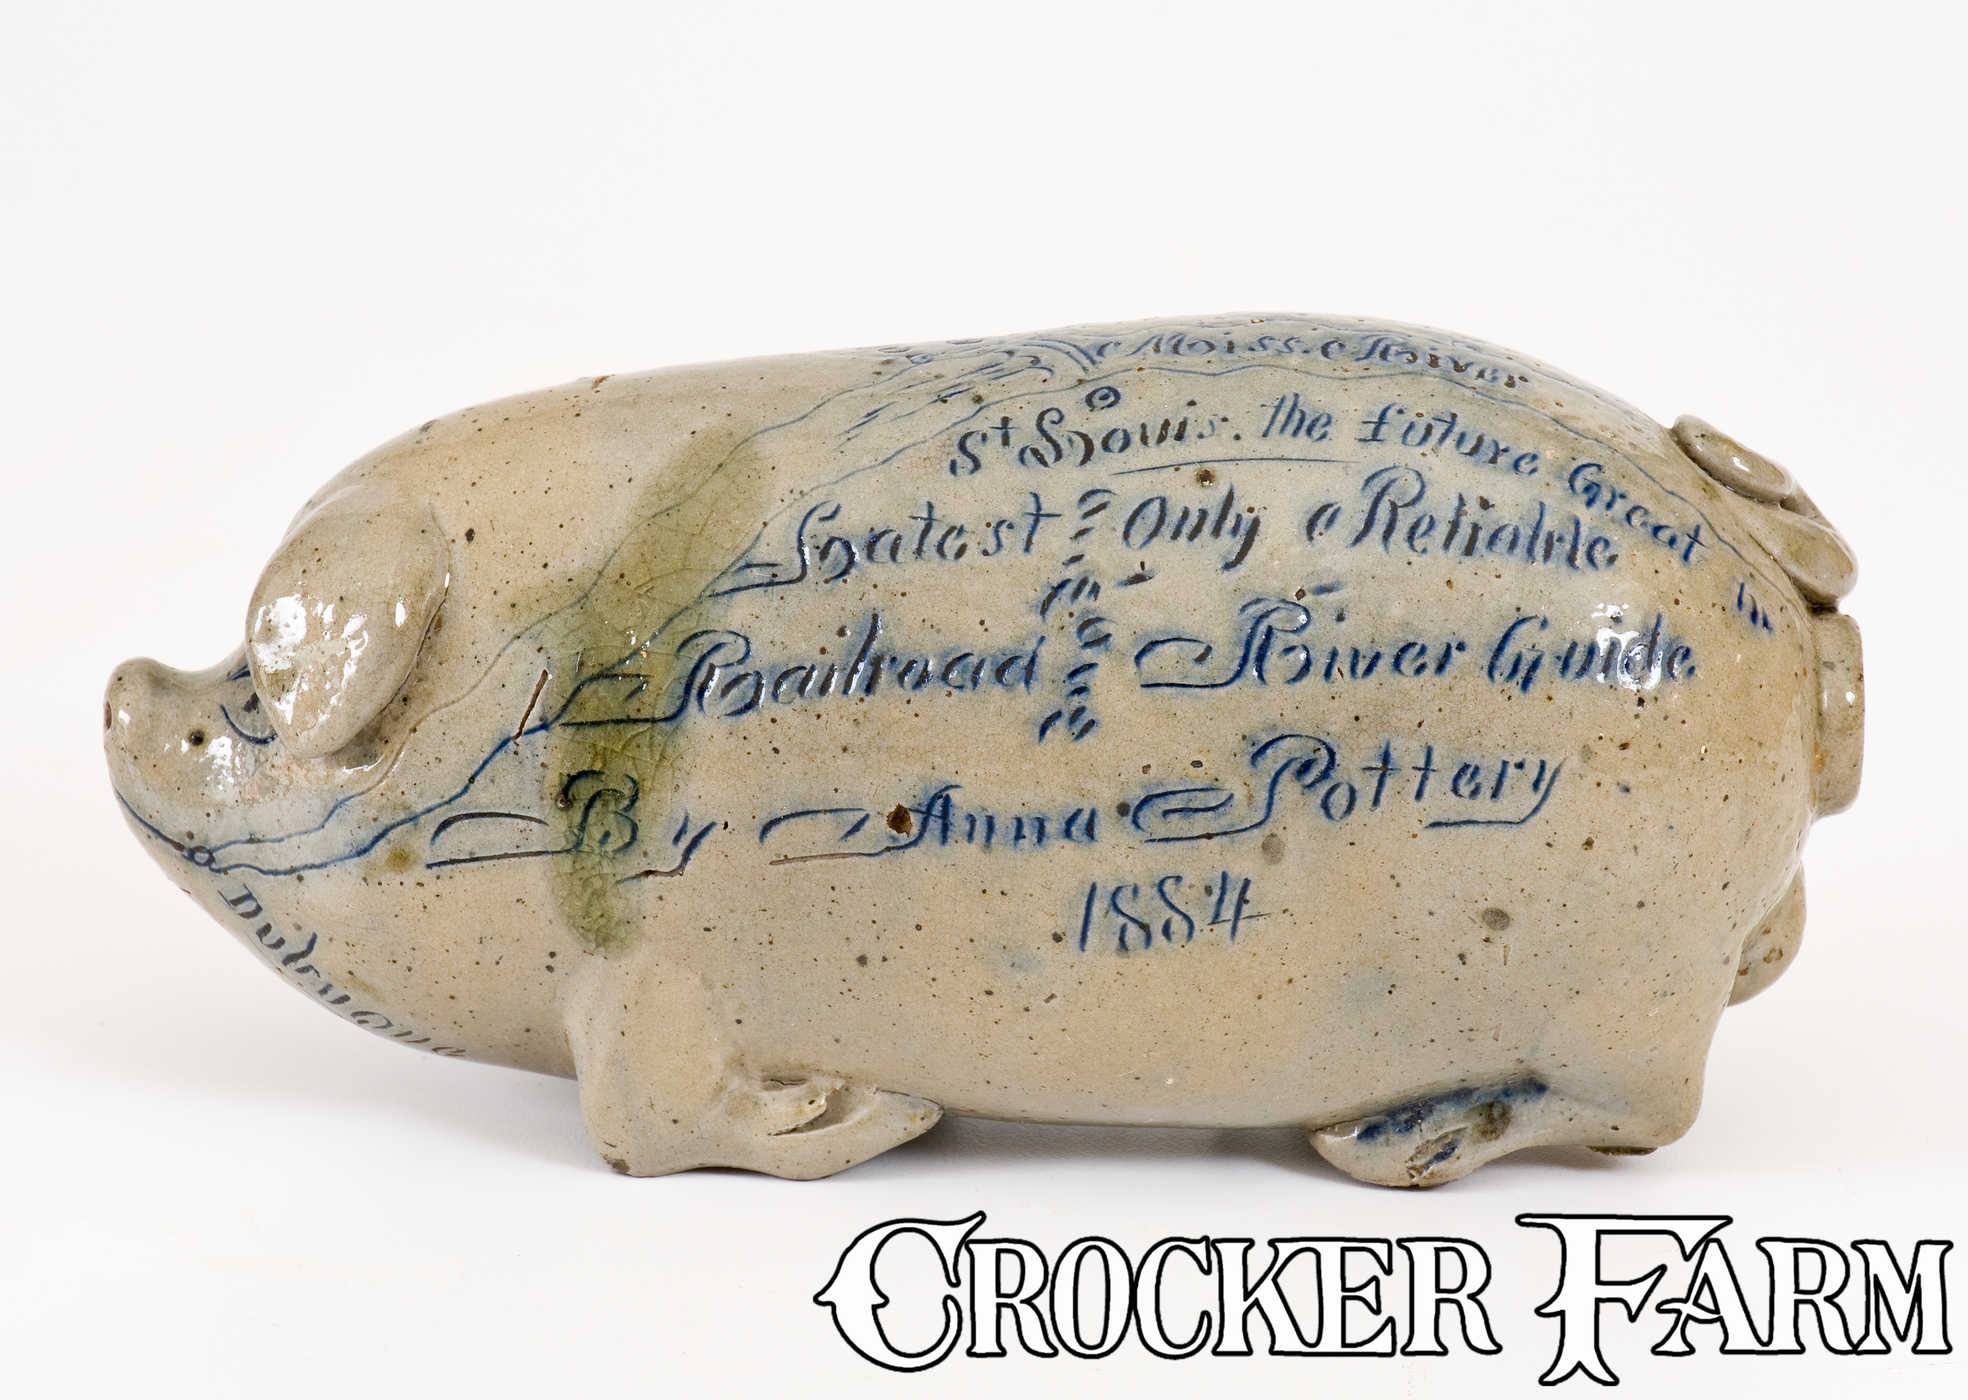 Miss. River
St Louis. the future Great
Latest & Only Reliable
Railroad & River Guide
By Anna Pottery
1884
CROCKER FARM